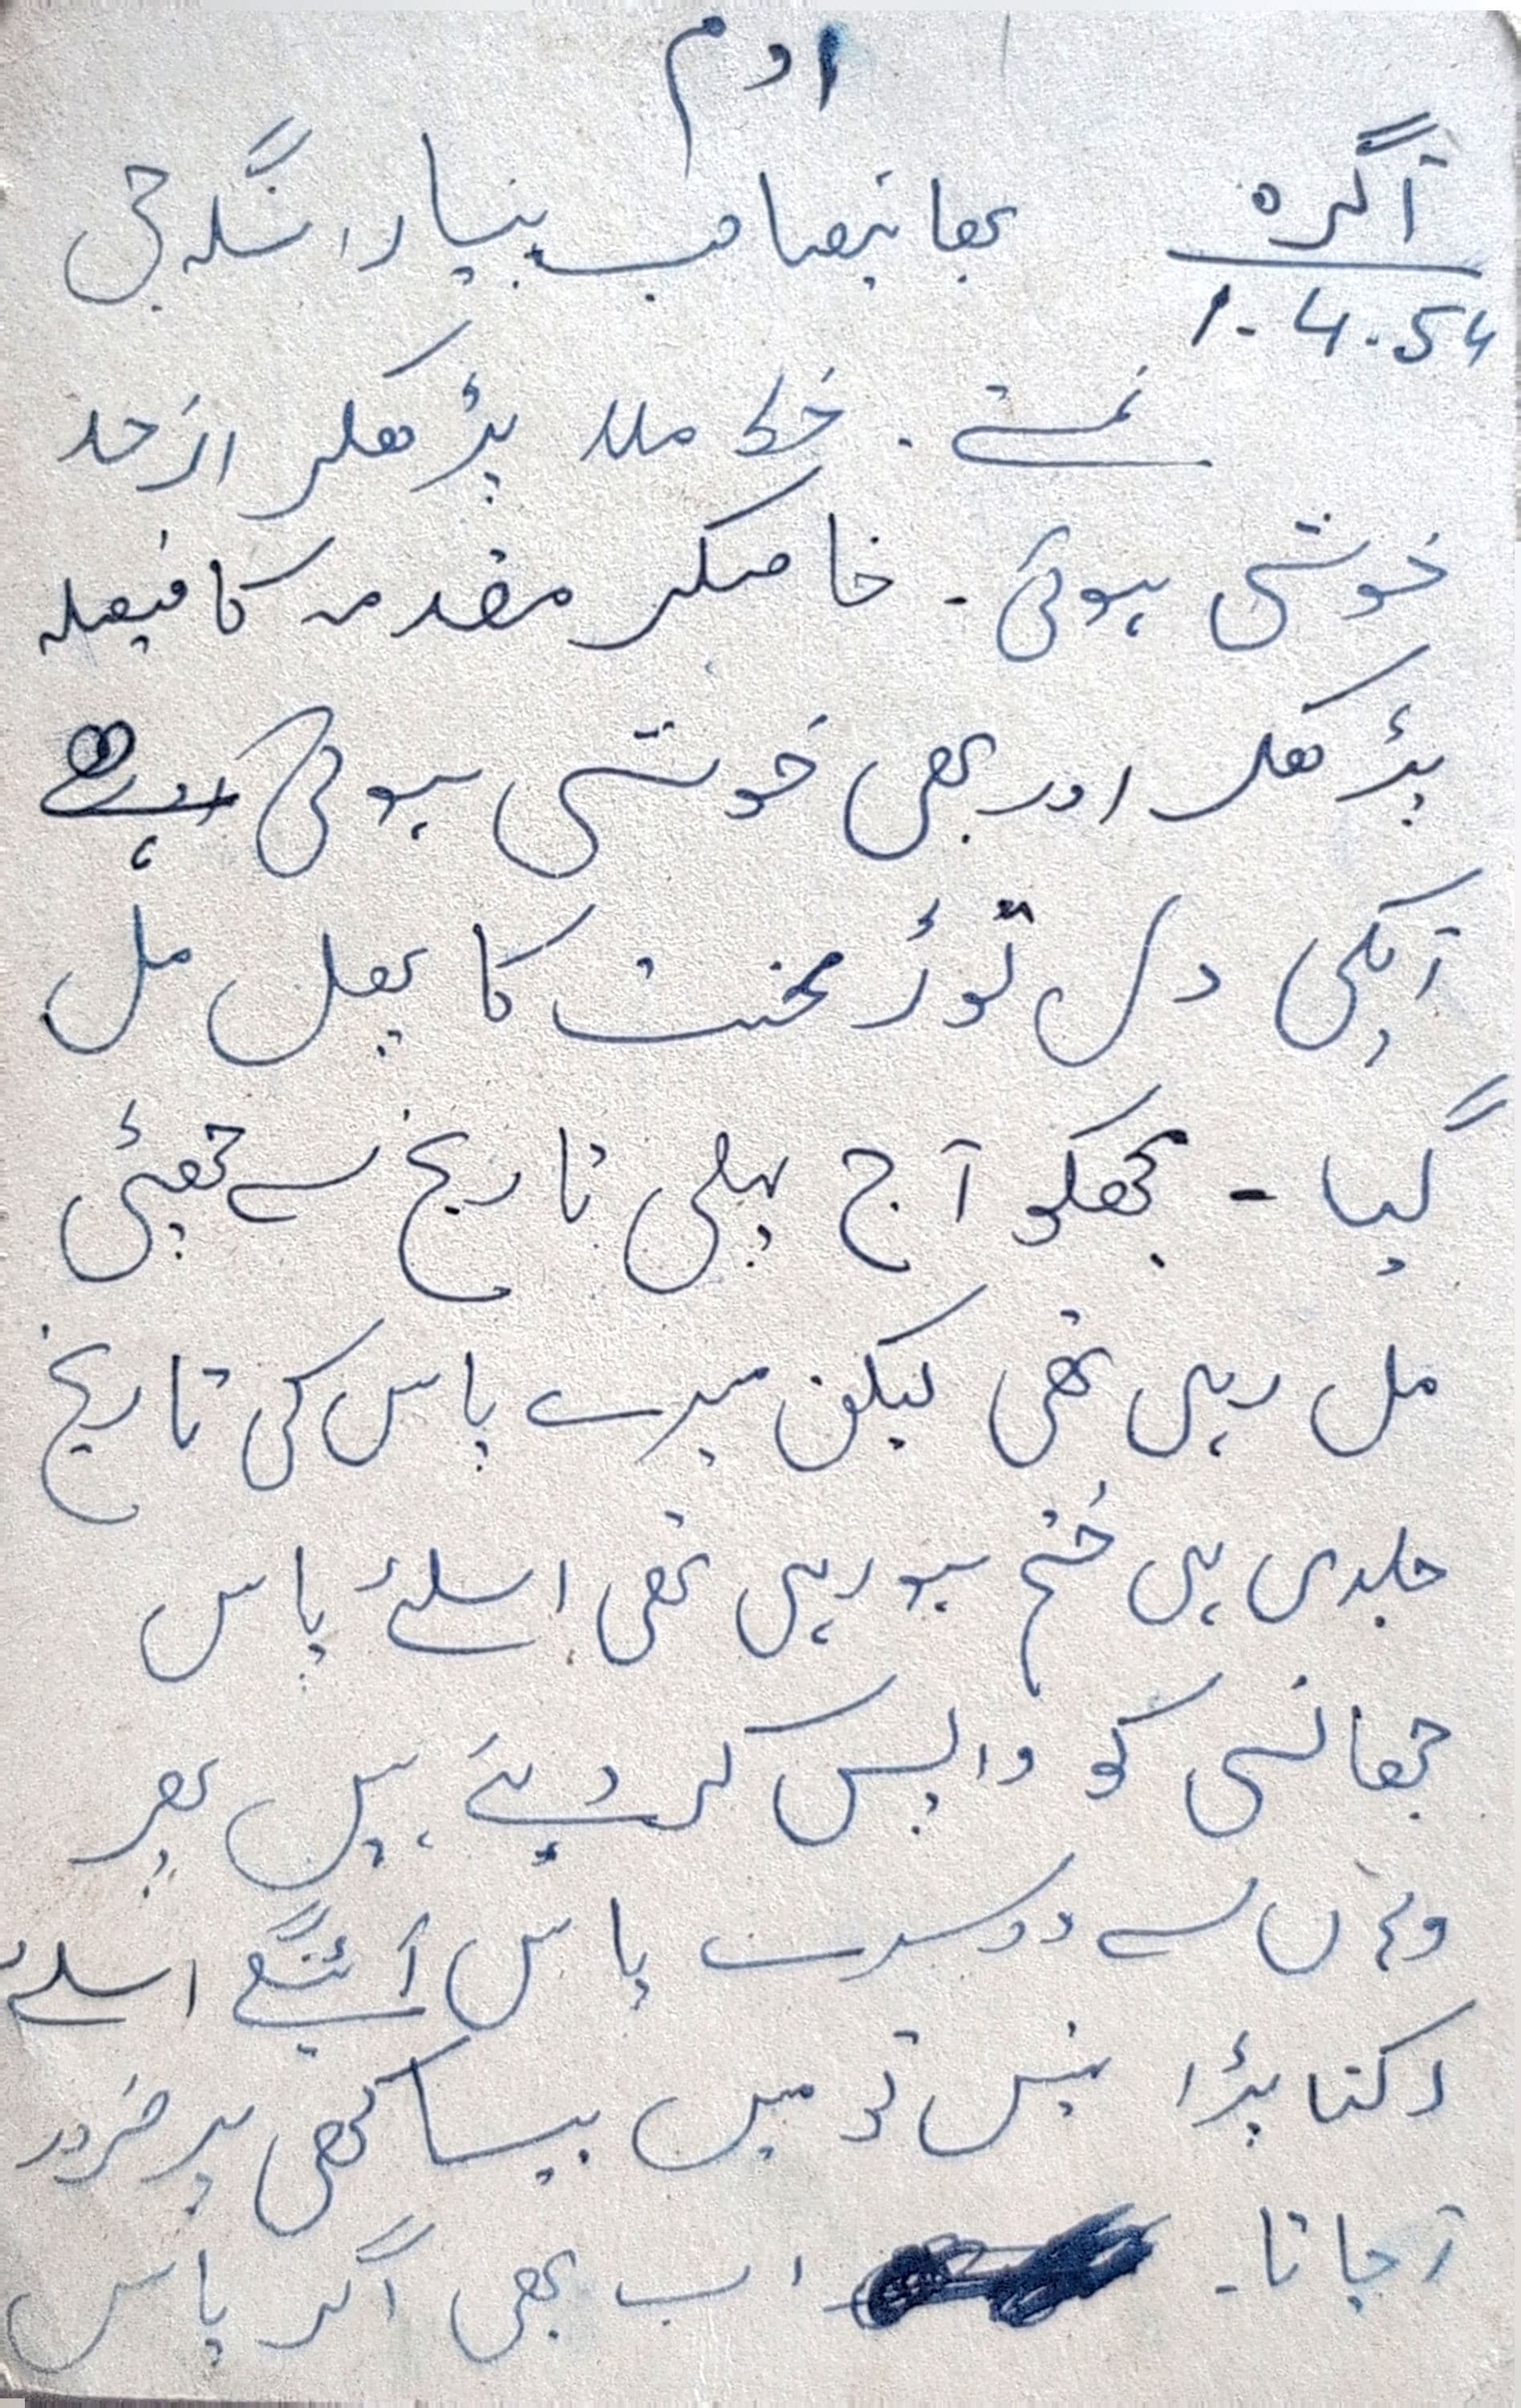 اوم
آگرہ بھائیصاحب پیارا سنگھ جی
1-4-54
نمستے . خط ملا پڑھکر ازحد
خوشی ہوئی - خاصکر مقدمہ کا فیصلہ
پڑھکر اور بھی خوشی ہوئی
آپکی دل توڑ محنت کا پھل مل
گیا - مجھکو آج پہلی تاریخ سے چھٹی
مل رہی تھی لیکن میرے پاس کی تاریخ
جلدی ہی ختم ہو رہی تھی اسلئے پاس
جھانسی کو واپس کر دیئے ہیں پھر
وہاں سے دوسرے پاس آئینگے اسلئے
رکنا پڑا نہیں تو میں بیساکھی پر ضرور
آجاتا - اب بھی اگر پاس